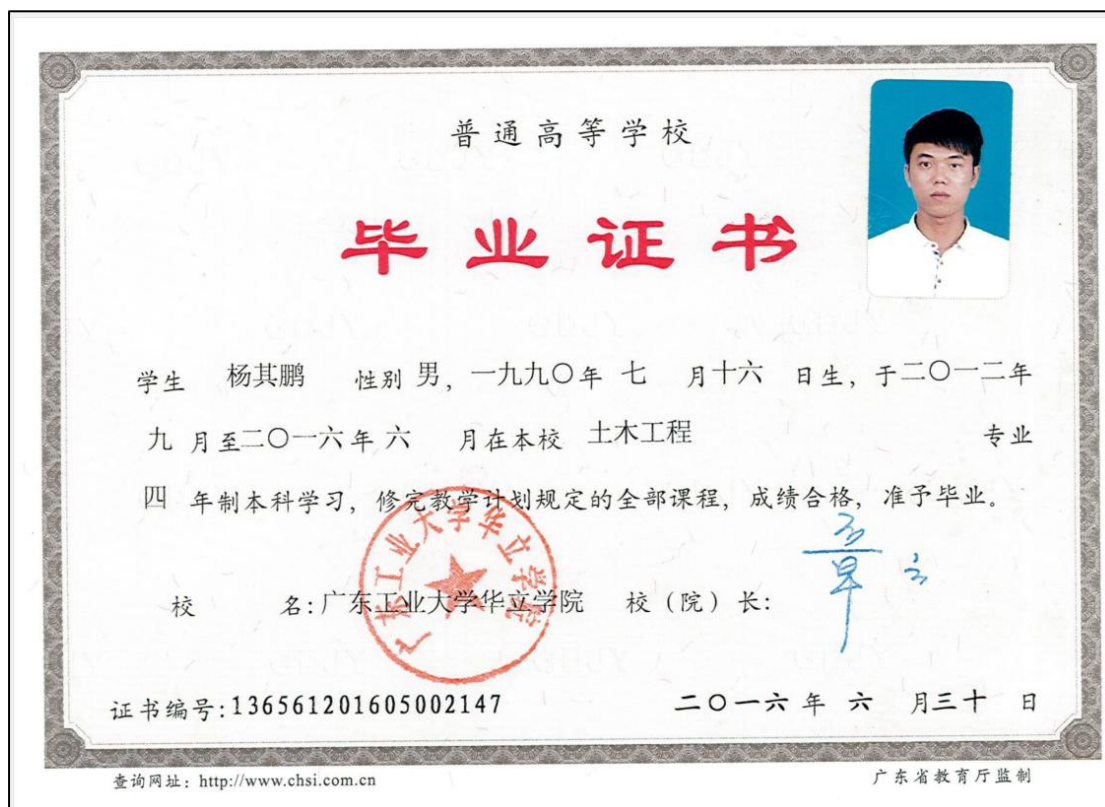 普通高等学校
毕业证书
学生 杨其鹏 性别 男，一九九〇年 七 月十六 日生，于二〇一二年
九 月至二〇一六年 六 月在本校 土木工程 专业
四 年制本科学习，修完教学计划规定的全部课程，成绩合格，准予毕业。
广东工业大学华立学院
校 名：广东工业大学华立学院 校（院）长：
证书编号：136561201605002147 二〇一六 年 六 月三十 日
查询网址：http://www.chsi.com.cn 广东省教育厅监制